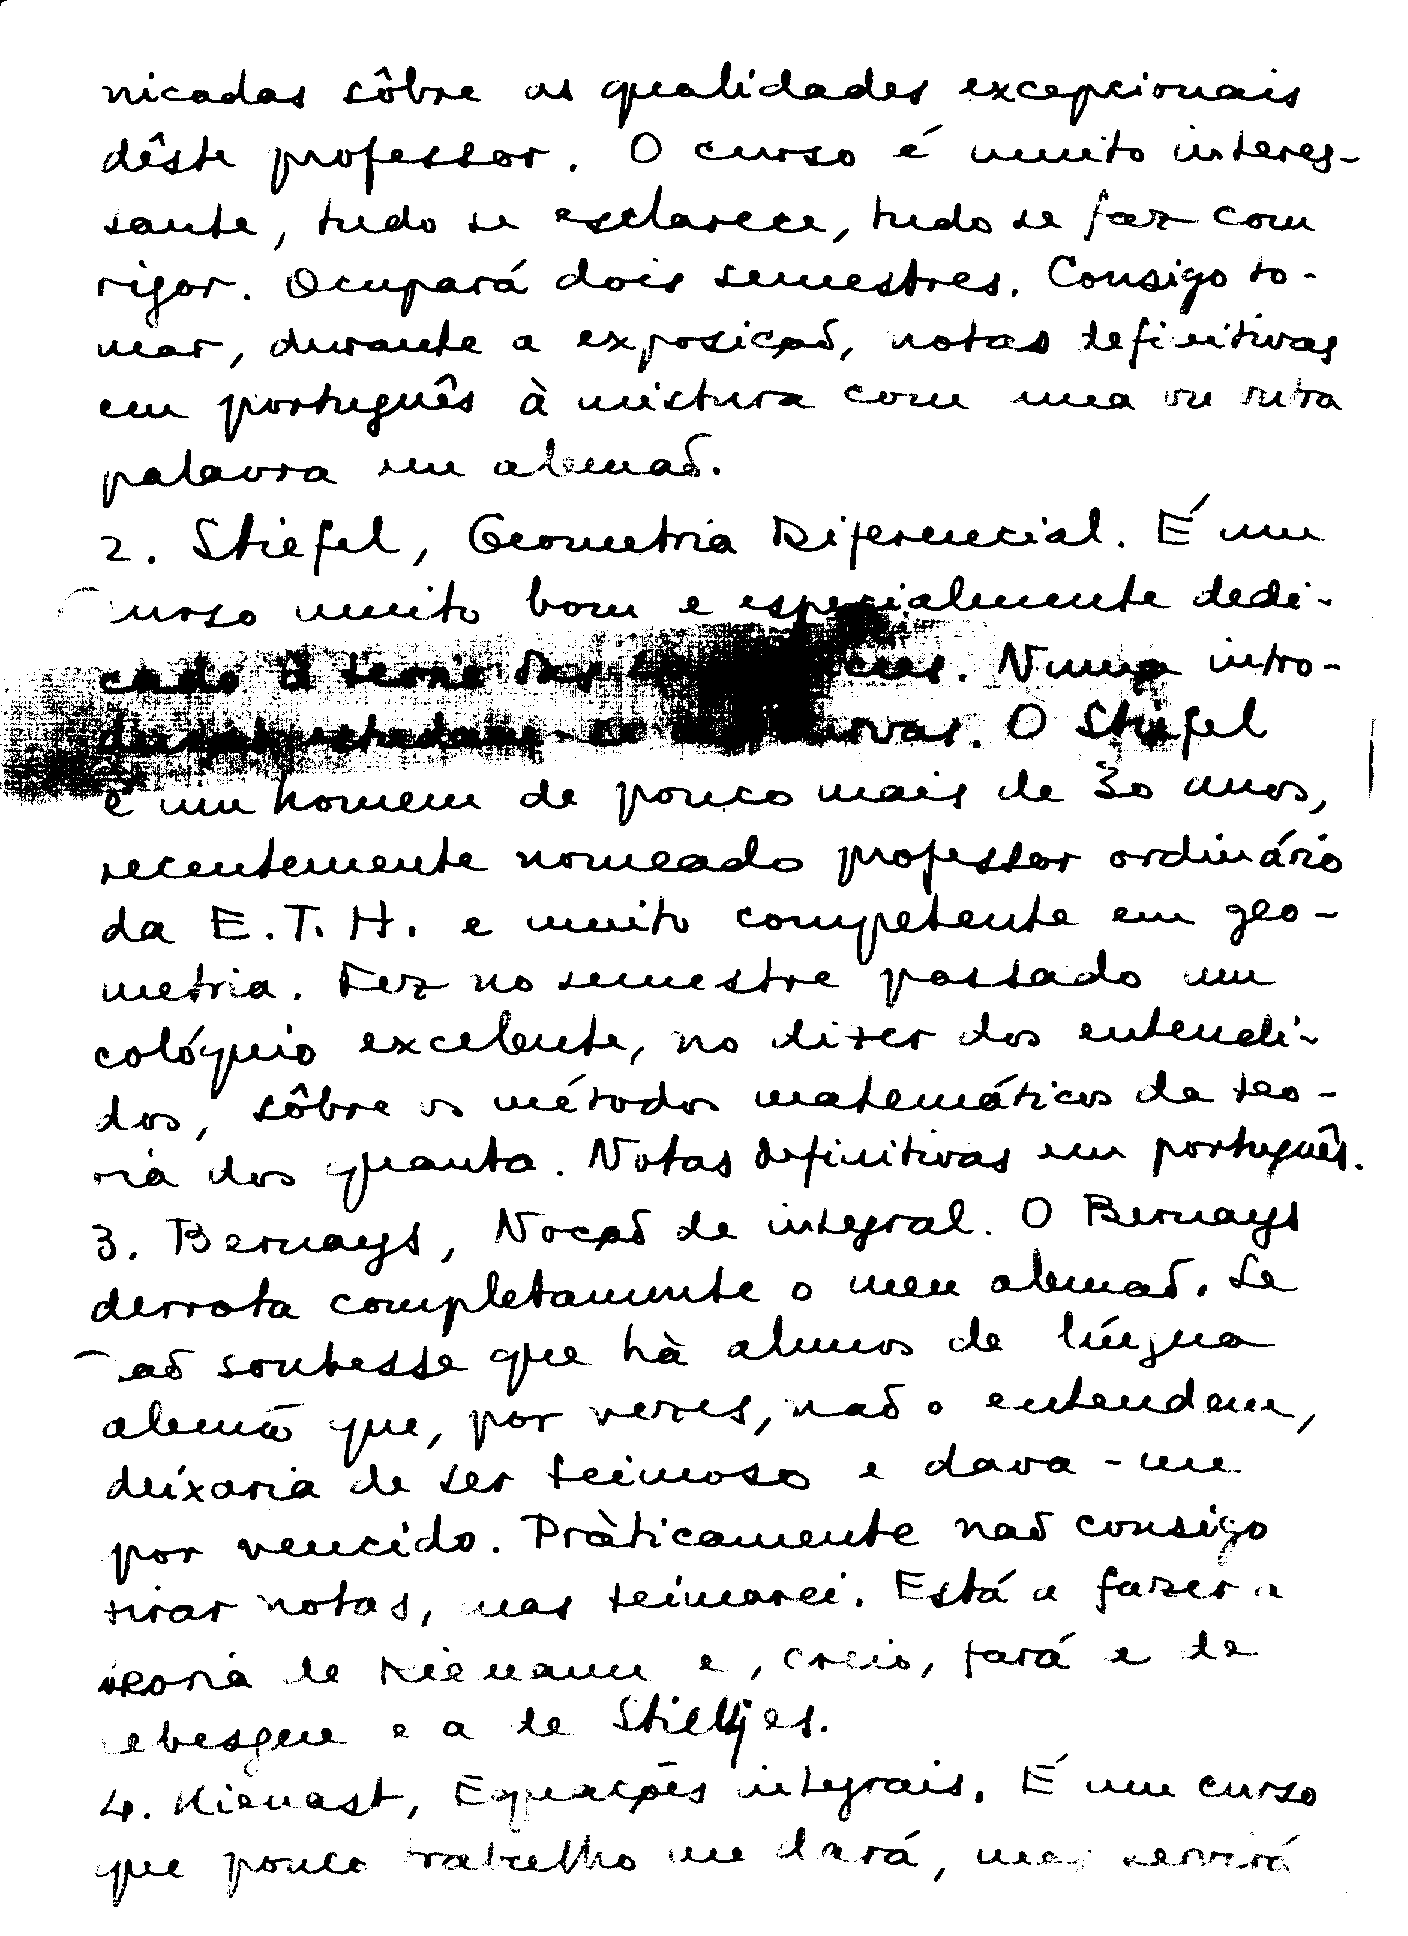 nicadas sôbre as qualidades excepcionais
dêste professor. O curso é muito interes-
sante, tudo se esclarece, tudo se faz com
rigor. Ocupará dois semestres. Consigo to-
mar, durante a exposição, notas definitivas
em português à mistura com uma ou outra
palavra em alemão.
2. Stiefel, Geometria Diferencial. É um
curso muito bom e especialmente dedi-
cado à teoria das superfícies. Numa intro-
estudam-se as curvas. O Stiefel
é um homem de pouco mais de 30 anos,
recentemente nomeado professor ordinário
da E.T.H. e muito competente em geo-
metria. Fez no semestre passado um
colóquio excelente, no dizer dos entendi-
dos, sôbre os métodos matemáticos da teo-
ria dos quanta. Notas definitivas em português.
3. Bernays, Noção de integral. O Bernays
derrota completamente o meu alemão. Se
não soubesse que hà alunos de língua
alemã que, por vezes, não o entendem,
deixaria de ser teimoso e dava-me
por vencido. Pràticamente não consigo
tirar notas, mas teimarei. Está a fazer a
teoria de Riemann e, creio, fará a de
Lebesgue e a de Stieltjes.
4. Kienast, Equações integrais. É um curso
que pouco trabalho me dará, mas servirá